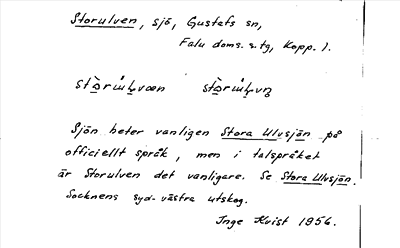 Storulven, sjö, Gustafs sn,
Falu doms. o. tg, Kopp. l.
Sjön heter vanligen Stora Ulvsjön på
officiellt språk, men i talspråket
är Storulven det vanligare. Se Stora Ulvsjön.
Socknens syd-västra utskog.
Inge Kvist 1956.